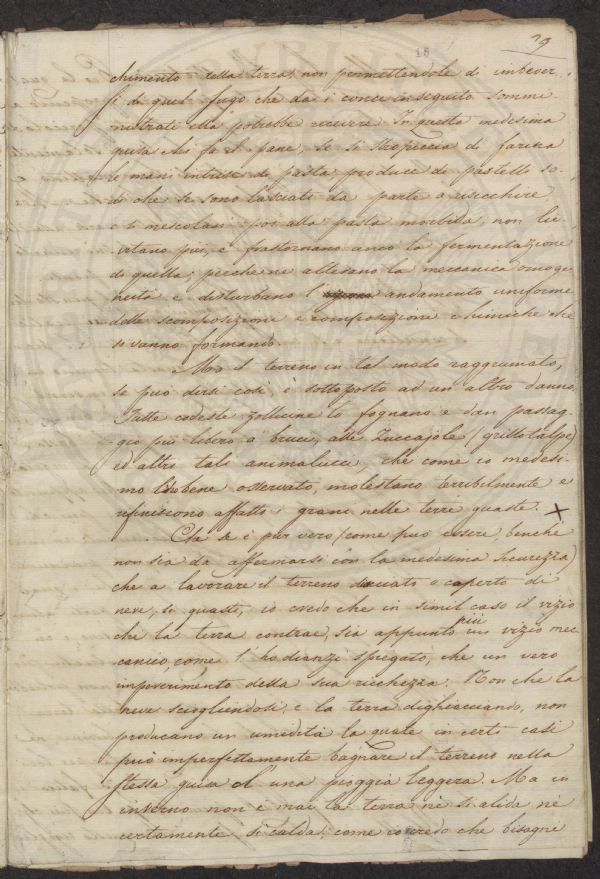 29
chimento della terra, non permettendole di imbever-
si di quel sugo che da i conci in seguito sommi-
nistrati ella potrebbe ricevere. In questa medesima
guisa chi fa il pane, se si stropiccia di farina
le mani intrise di pasta, produce de pastelli so-
di che se sono lasciati da parte a risecchire
e si mescolano poi alla pasta morbida, non lie-
vitano più, e frastornano anco la fermentazione
di quella; perche ne alterano la meccanica omoge-
neità e disturbano l' andamento uniforme
delle scomposizione e composizione chimiche che
si vanno formando.
Ma il terreno in tal modo raggrumato,
se può dirsi così, è sottoposto ad un altro danno.
Tutte codeste zolliccine lo fognano e dan passag-
gio più libero a bruci, alle Zuccajole (grillotalpe)
ed altri tali animalucci, che come io medesi-
mo ho bene osservato, molestano terribilmente e
rifiniscono affatto i grani nelle terre guaste. X
Che se è pur vero (come può essere, benche
non sia da affermarsi con la medesima sicurezza)
che a lavorare il terreno diacciato o coperto di
neve, si guasti, io credo che in simil caso il vizio
che la terra contrae, sia appunto più un vizio mec-
canico come l' ho dianzi spiegato, che un vero
impoverimento della sua ricchezza. Non che la
neve sciogliendosi e la terra dighiacciando, non
producano un umidità la quale in certi casi
può imperfettamente bagnare il terreno nella
stessa guisa d' una pioggia leggera. Ma in
inverno non è mai la terra nè sì alida nè
certamente sì calda, come io credo che bisogni